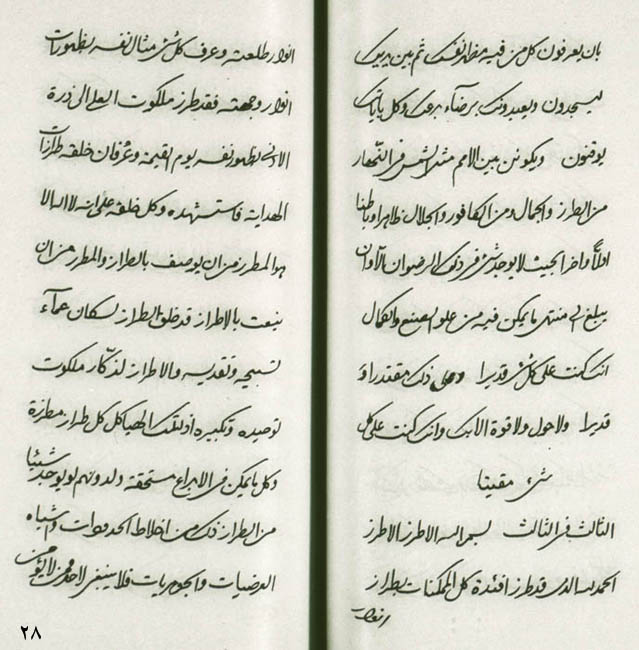 بان يعرفون كل من فيه مظاهر نفسك ثم بين يديك
ليسجدون ويعبدونك برضآء بر عنك وكل باياتك
يوقنون ويكونن بين الامم مثل الشمس فى النهار
من الطرز والجمال ومن الكافور والجلال ظاهرا وباطنا
اولاً واخرا بحيث لا يوجد شئ فى ذلك الرضوان الا وان
يبلغ الى منتهى ما يمكن فيه من علو الصنع والكمال
انك كنت على كل شئ قديرا وعلى ذلك مقتدراً و
قديرا ولا حول ولا قوة الا بك وانك كنت على كل
شئ مقيتا
الثالث فى الثالث بسم الله الاطرز الاطرز
الحمد لله الذى قد طرز افئدة كل الممكنات بطراز
انوار
انوار طلعته وعرف كل شئ مثال نفسه بظهورات
انوار وجهته فقد طرز ملكوت العلى الى ذرة
الادنى لظهور نفسه يوم القيمة وعرفان خلقه طرازات
الهدايته فاستشهده وكل خلقه على انه لا اله الا
هو المطرز من ان يوصف بالطراز والمطرز من ان
ينعت بالاطراز قد خلق الطراز لسكان عمآء
تسبيحه وتقديسه والاطراز لذكّار ملكوت
توحيده وتكبيره اذ تلك الهياكل كل طراز مطرزة
وكل ما يمكن فى الابداع مستحقة ولدونهم لو يوجد شيئا
من الطراز ذلك من اخلاط الحدودات واشباه
العرضيات والجوهريات فلا ينبغى لاحد ممن لا يؤمن
٢٨